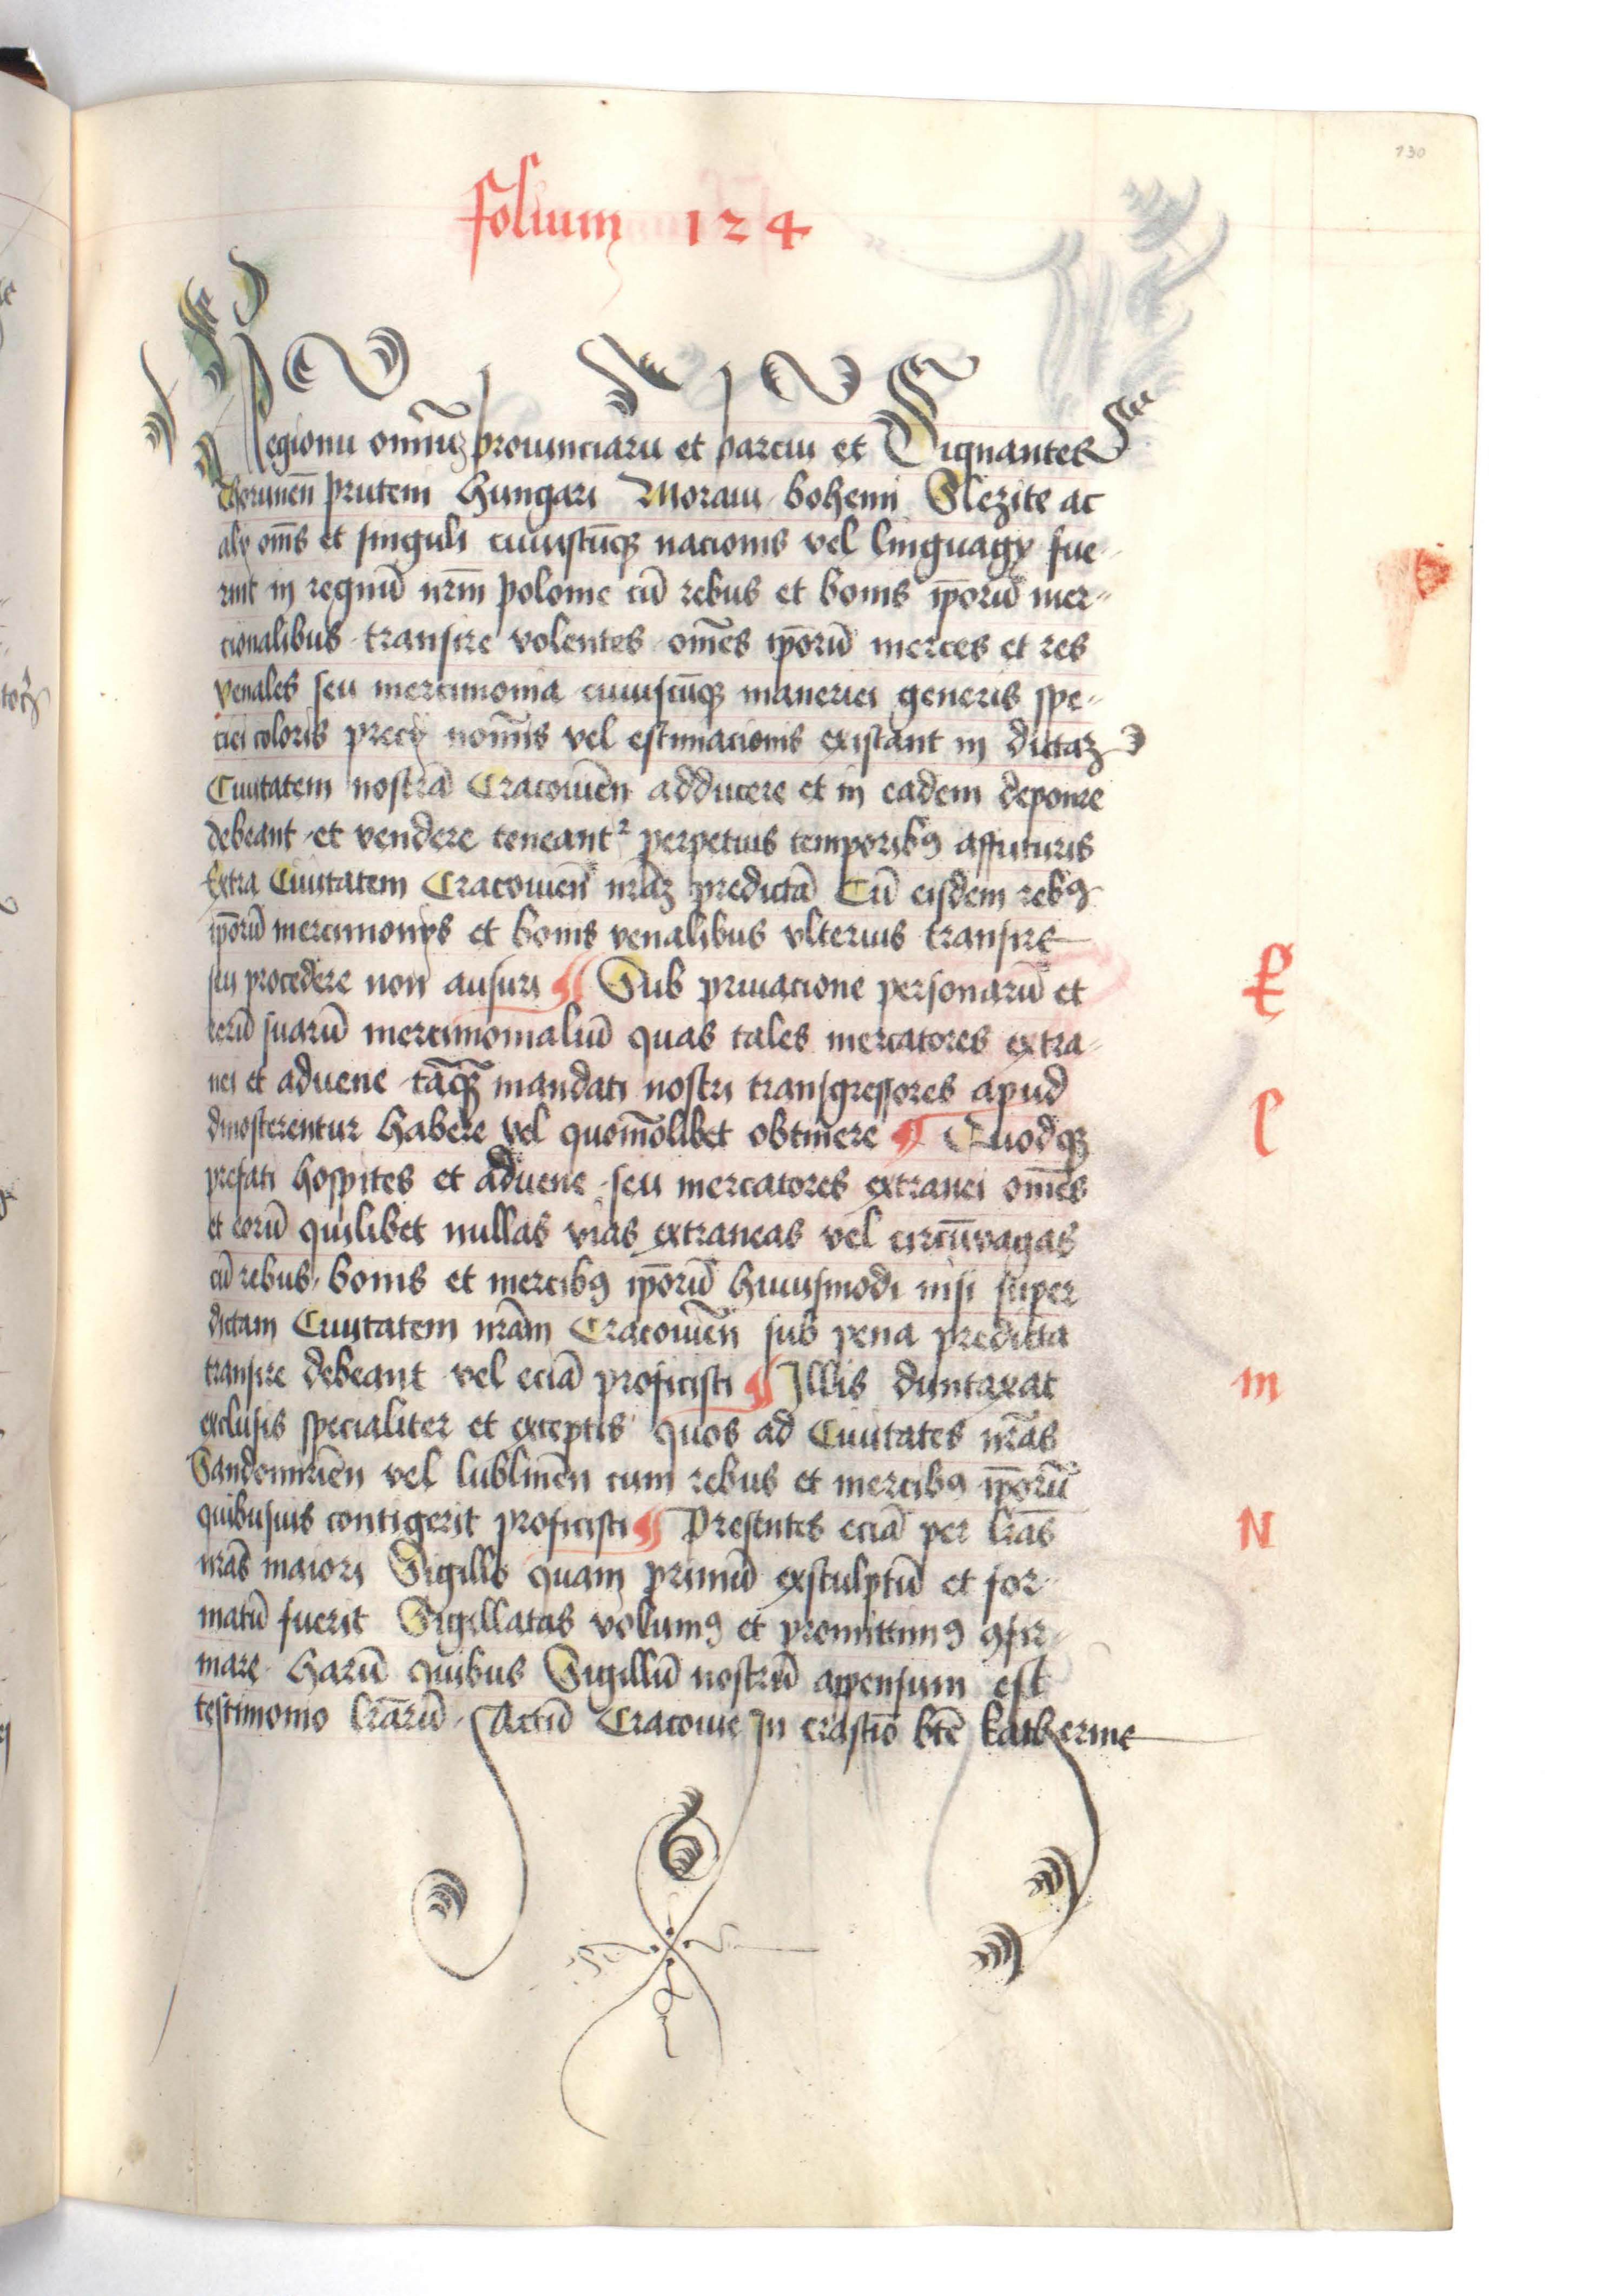 130
folium 124
Regionu om̄iuȝ prouinciaru et parciu et Signanter
Thorunen̄ pruteni Hungari Moraui bohemi Slezite ac
aly om̄s et singuli cuiuscūqȝ nacionis vel linguagy fue-
rint in regnū nr̄m polonie cū rebus et bonis ip̄orū mer-
cionalibus transire volentes om̄es ip̄orū merces et res
venales seu mercimonia cuiuscūqȝ maneriei generis spe-
ciei coloris precy nom̄is vel estimacionis existant in dictaȝ
Ciuitatem nostrā Cracouien̄ adducere et in eadem deponere
debeant et vendere teneant² perpetuis temporibꝯ affuturis
Extra Ciuitatem Cracouien̄ nr̄aȝ predictā Cū eisdem rebꝯ
ip̄orū mercimonys et bonis venalibus vlterius transire
seu procedere non ausuri ¶ Sub priuacione personarū et
rerū suarū mercimonialiū quas tales mercatores extra-
nei et aduene tāqȝ mandati nostri transgressores apud
dinosterentur habere vel quom̄olibet obtinere ¶ Quodqȝ
prefati hospites et aduene seu mercatores extranei om̄es
et eorū quilibet nullas vias extraneas vel circūvagas
cū rebus bonis et mercibꝯ ip̄orū huiusmodi nisi super
dictam Ciuitatem nr̄am Cracouien̄ sub pena predicta
transire debeant vel eciā proficisci ¶ Illis duntaxat
exclusis specialiter et exceptis quos ad Ciuitates nr̄as
Sandomirien̄ vel lublinen̄ cum rebus et mercibꝯ ip̄orū
quibusuis contigerit proficisci ¶ Presentes eciā per lr̄as
nr̄as maiori Sigillo quam primū exsculptū et for-
matū fuerit Sigillatas volumꝯ et promittimꝯ ꝯfir-
mare harū quibus Sigillū nostrū appensum est
testimonio lr̄arū Actū Cracouie In crastīo btē katherine
k
l
m
N